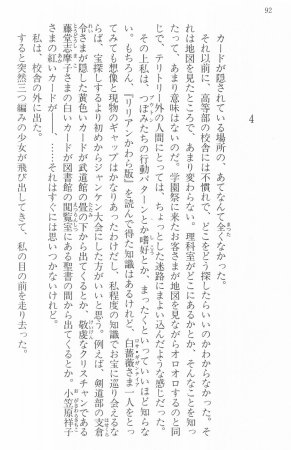 92
4
カードが隠されている場所の、あてなんて全くなかった。
それ以前に、高等部の校舎には不慣れで、どこをどう探したらいいのかわからなかった。そ
れは地図を見たところで、あまり変わらない。理科室がどこにあるとか、そんなことを知っ
たって、あまり意味はないのだ。学園祭に来たお客さまが地図を見ながらオロオロするのと同
じで、テリトリー外の人間にとっては、ちょっとした迷路にまよい込んだような感じだった。
その上私は、つぼみたちの行動パターンとか嗜好とか、まったくといっていいほど知らな
い。もちろん、『リリアンかわら版』を読んで得た知識はあるけれど、白薔薇さま一人をとっ
てみても想像と現物のギャップはかなりあったわけだし、私程度の知識でお宝に巡り会えるな
らば、宝探しするより初めからジャンケン大会にした方がいいと思う。例えば、剣道部の支倉
令さまが隠した黄色いカードが武道館の畳の下から出てくるとか、敬虔なクリスチャンである
藤堂志摩子さまの白いカードが図書館の閲覧室にある聖書の間から出てくるとか、小笠原祥子
さまの紅いカードが――、それはすぐには思いつかないけれど。
私は、校舎の外に出た。
すると突然三つ編みの少女が飛び出してきて、私の目の前を走り去った。